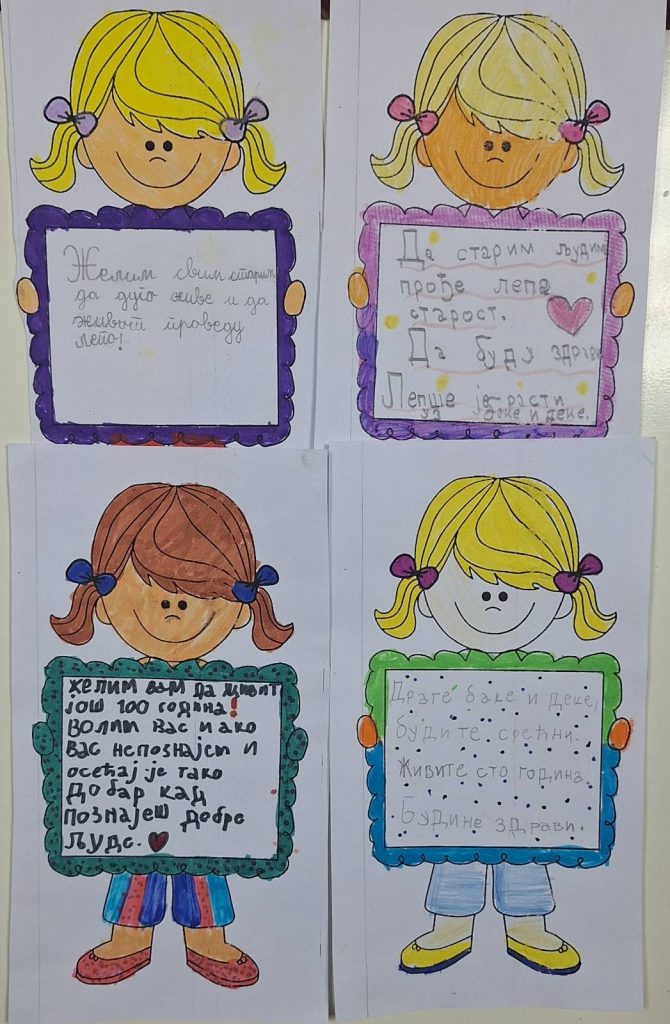 Желим свим старим
да дуго живе и да
живот проведу
лепо!
Да старим људима
прође лепа
старост.
Да буду здрави
Лепше је расти
уз баке и деке.
желим вам да живит
још 100 година!
волим вас и ако
вас непознајем и
осећај је тако
добар кад
познајеш добре
људе.
Драге баке и деке,
будите срећни.
Живите сто година.
Будине здрави.